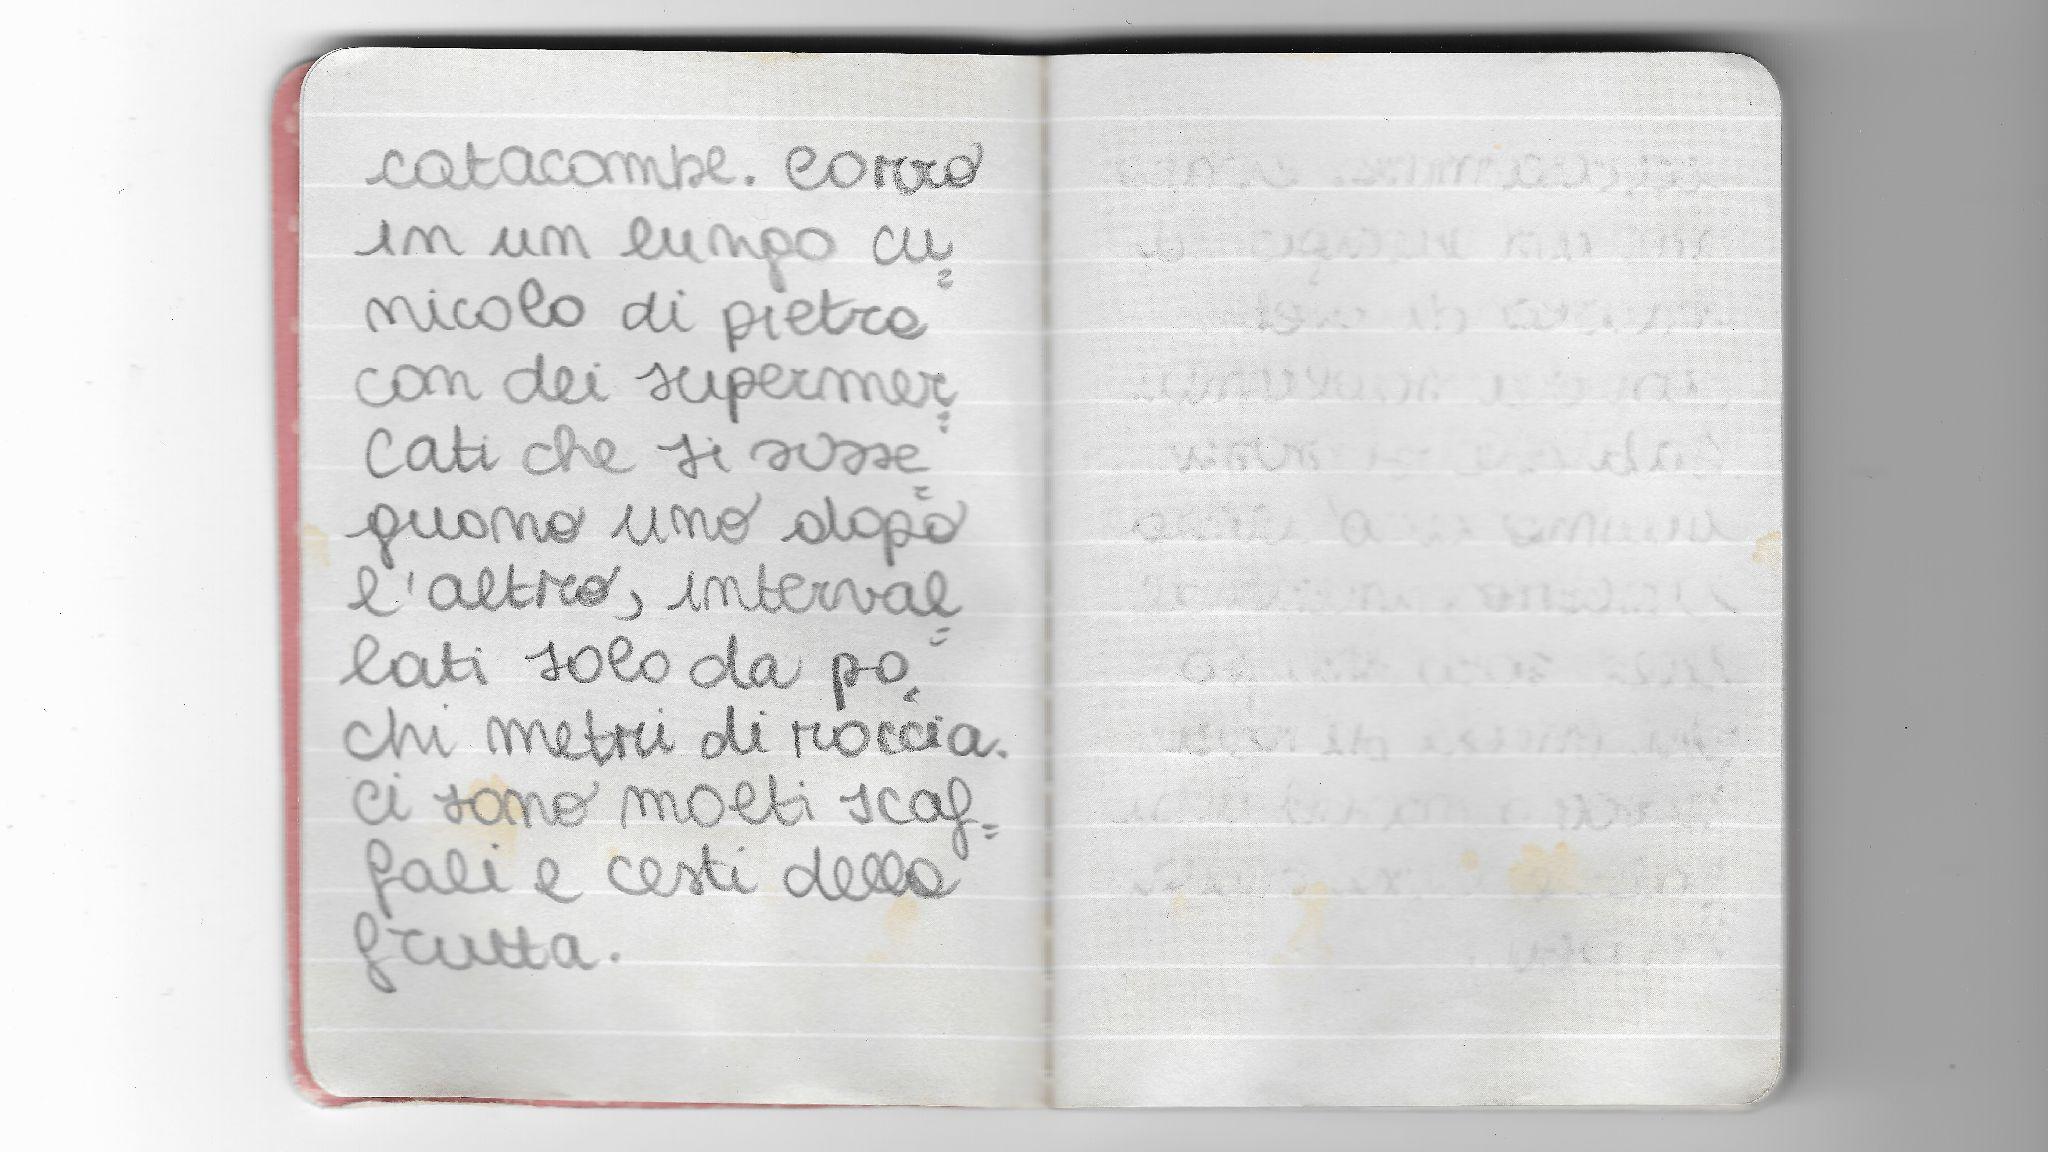 catacombe. Corro
in un lungo cu=
nicolo di pietra
con dei supermer=
cati che si susse=
guono uno dopo
l'altro, interval=
lati solo da po-
chi metri di roccia.
Ci sono molti scaf=
fali e cesti della
frutta.